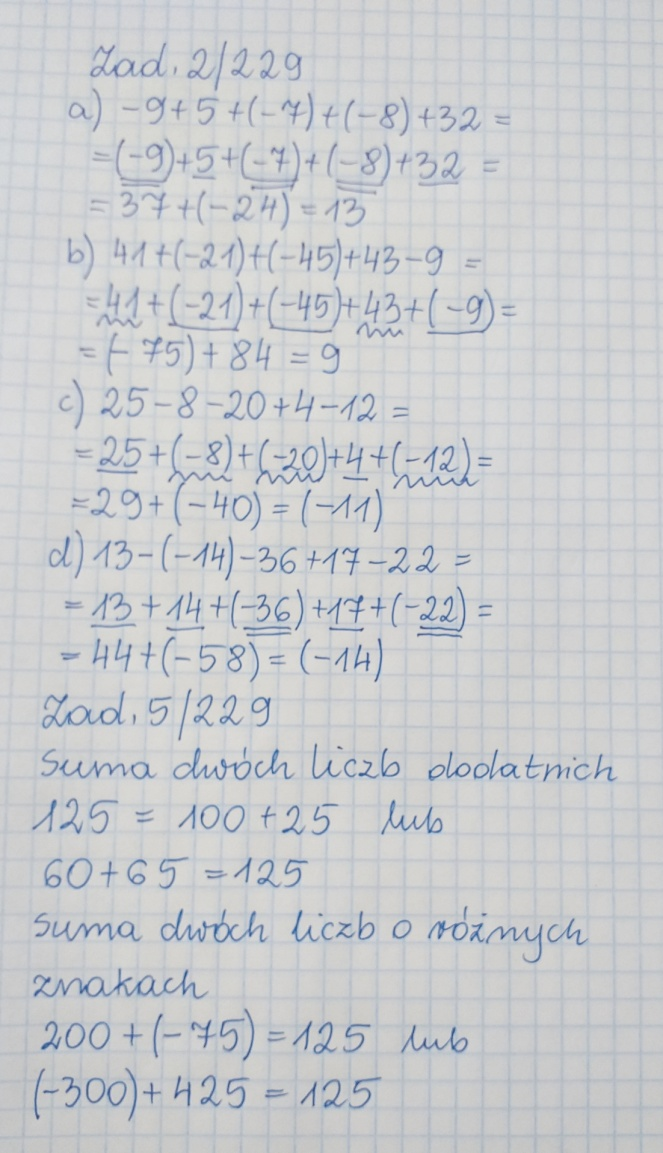 Zad. 2/229
a) -9+5+(-7)+(-8)+32 =
=(-9)+5+(-7)+(-8)+32 =
= 37+(-24)=13
b) 41+(-21)+(-45)+43-9 =
=41+(-21)+(-45)+43+(-9)=
=(-75)+84 = 9
c) 25-8-20+4-12 =
=25+(-8)+(-20)+4+(-12)=
=29+(-40)=(-11)
d) 13-(-14)-36+17-22 =
= 13+14+(-36)+17+(-22)=
= 44+(-58)=(-14)
Zad. 5/229
Suma dwóch liczb dodatnich
125 = 100+25 lub
60+65 =125
Suma dwóch liczb o różnych
znakach
200+(-75)=125 lub
(-300)+425 = 125